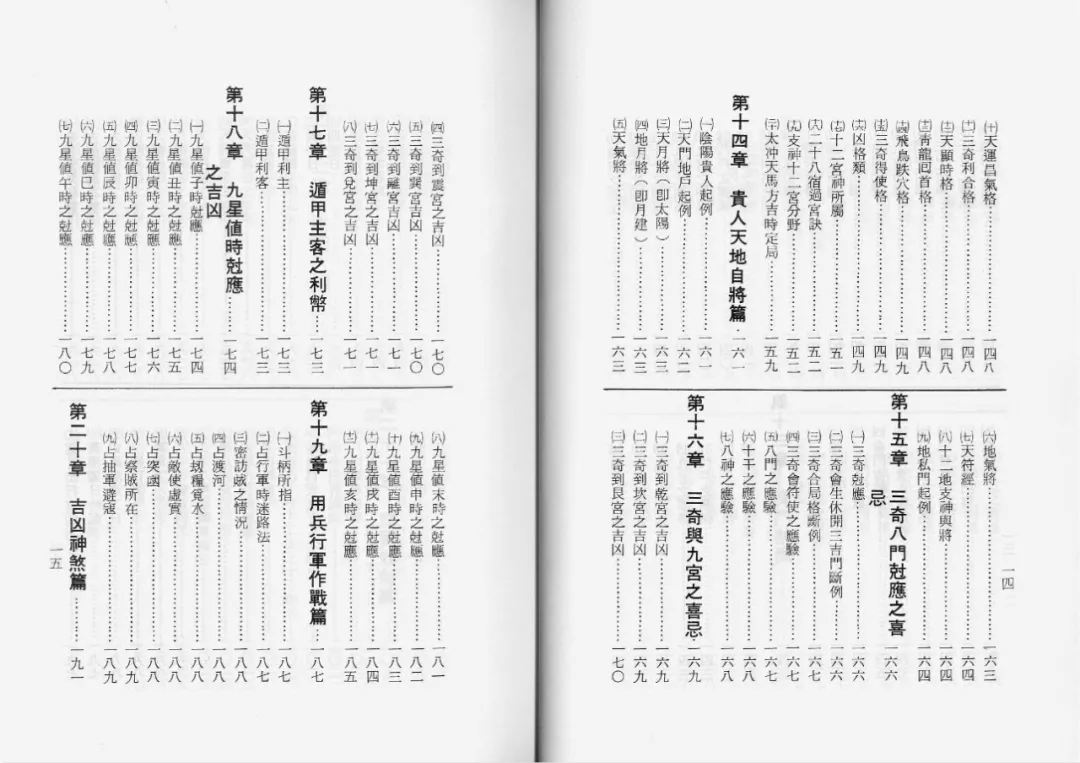 ㈩天運昌氣格……一四八
㈩㈠三奇利合格……一四八
㈩㈡天顯時格……一四八
㈩㈢青龍囘首格……一四八
㈩㈣飛鳥跌穴格……一四九
㈩㈤三奇得使格……一四九
㈩㈥凶格類……一四九
㈩㈦十二宮神所屬……一五一
㈩㈧二十八宿過宮訣……一五二
㈩㈨支神十二宮分野……一五二
㈡㈩太冲天馬方吉時定局……一五九
第十四章　貴人天地自將篇……一六一
㈠陰陽貴人起例……一六一
㈡天門地戶起例……一六二
㈢天月將（卽太陽）……一六三
㈣地月將（卽月建）……一六三
㈤天氣將……一六三
㈥地氣將……一六三
㈦天符經……一六四
㈧十二地支神與將……一六四
㈨地私門起例……一六四
第十五章　三奇八門尅應之喜
忌……一六六
㈠三奇尅應……一六六
㈡三奇會生休開三吉門斷例……一六六
㈢三奇合局格斷例……一六七
㈣三奇會符使之應驗……一六七
㈤八門之應驗……一六七
㈥十干之應驗……一六八
㈦八神之應驗……一六八
第十六章　三奇與九宮之喜忌……一六九
㈠三奇到乾宮之吉凶……一六九
㈡三奇到坎宮之吉凶……一六九
㈢三奇到艮宮之吉凶……一七〇
一四
㈣三奇到震宮之吉凶……一七〇
㈤三奇到巽宮吉凶……一七〇
㈥三奇到離宮吉凶……一七一
㈦三奇到坤宮之吉凶……一七一
㈧三奇到兌宮之吉凶……一七一
第十七章　遁甲主客之利幣……一七三
㈠遁甲利主……一七三
㈡遁甲利客……一七三
第十八章　九星値時尅應
之吉凶……一七四
㈠九星値子時尅應……一七四
㈡九星値丑時之尅應……一七五
㈢九星値寅時之尅應……一七六
㈣九星値卯時之尅應……一七七
㈤九星値辰時之尅應……一七八
㈥九星値巳時之尅應……一七九
㈦九星値午時之尅應……一八〇
㈧九星値未時之尅應……一八一
㈨九星値申時之尅應……一八二
㈩九星値酉時之尅應……一八三
㈩㈠九星値戌時之尅應……一八四
㈩㈡九星値亥時之尅應……一八五
第十九章　用兵行軍作戰篇……一八七
㈠斗柄所指……一八七
㈡占行軍時迷路法……一八七
㈢密訪賊之情況……一八八
㈣占渡河……一八八
㈤占刼糧覓水……一八八
㈥占敵使虛實……一八八
㈦占突圍……一八八
㈧占察賊所在……一八九
㈨占抽軍避寇……一八九
第二十章　吉凶神煞篇……一九一
一五